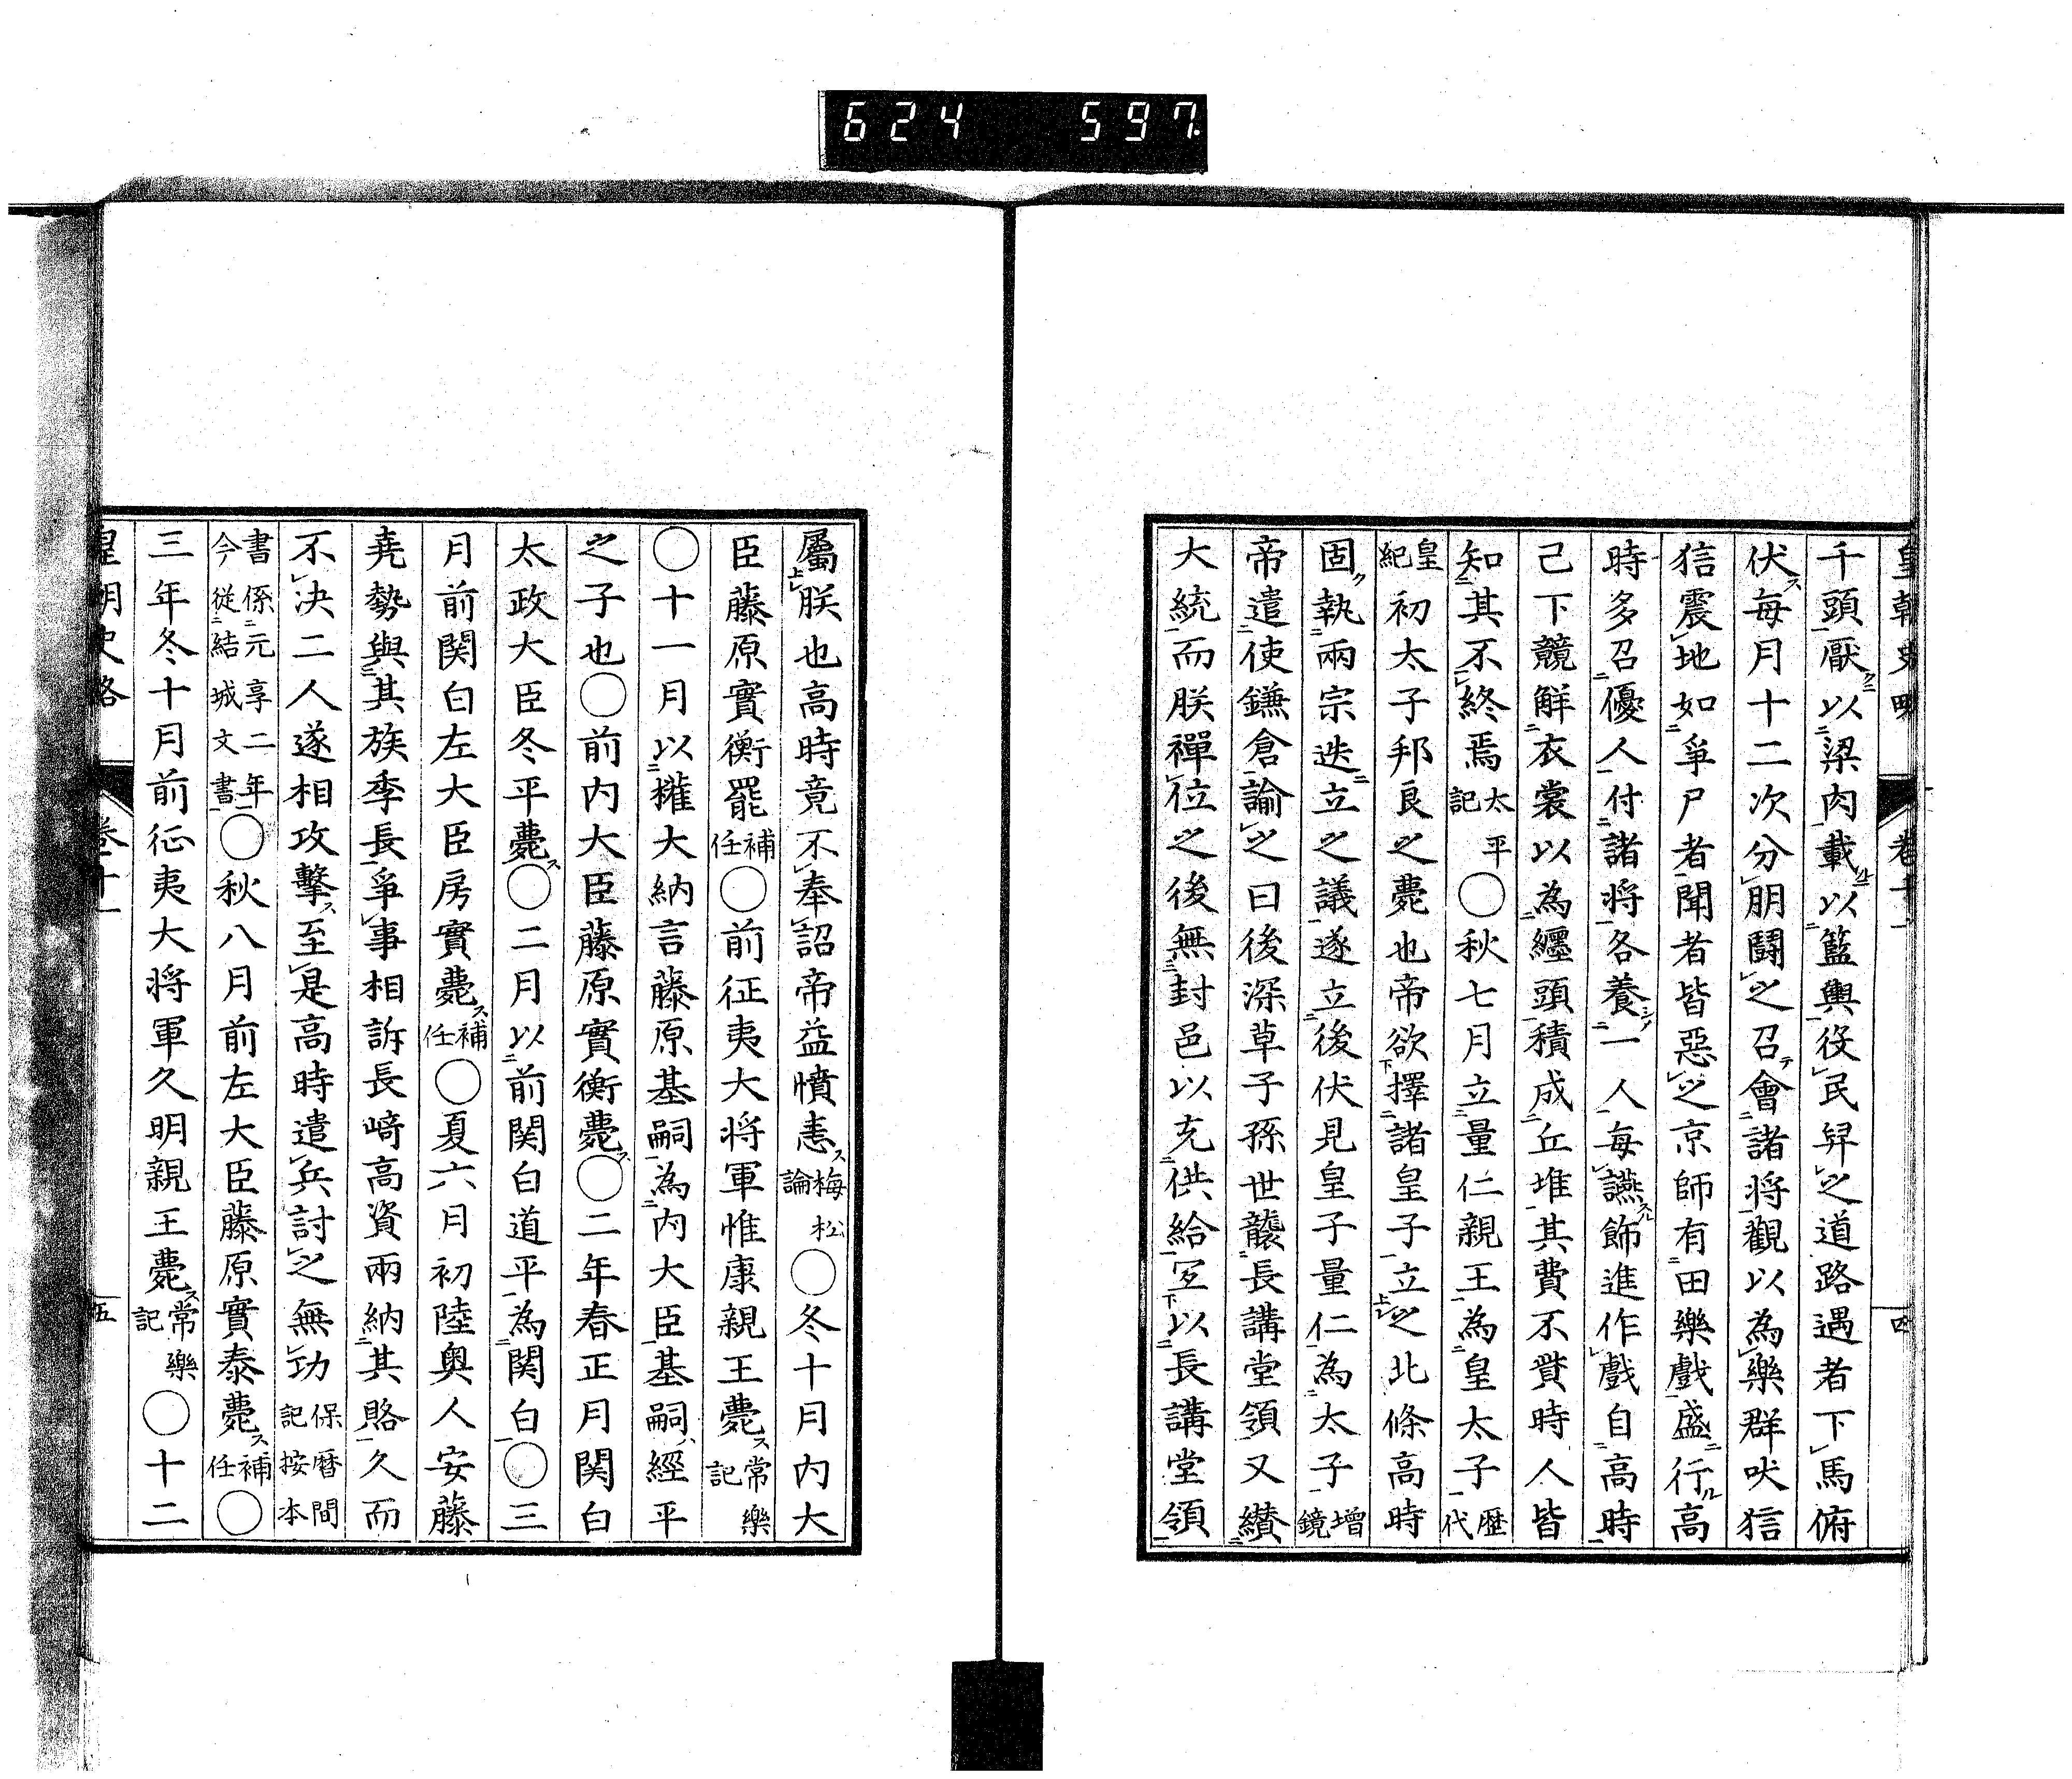 624 597
皇朝史略 卷十一 四
千頭厭以梁肉載以籃輿役民舁之道路遇者下馬俯
伏每月十二次分朋鬪之召會諸将觀以為樂群吠狺
狺震地如爭尸者聞者皆惡之京師有田樂戲盛行高
時多召優人付諸将各養一人每讌飾進作戲自高時
己下競解衣裳以為纏頭積成丘堆其費不貲時人皆
知其不終焉太平記○秋七月立量仁親王為皇太子歴代
皇紀初太子邦良之薨也帝欲擇諸皇子立之北條高時
固執兩宗迭立之議遂立後伏見皇子量仁為太子增鏡
帝遣使鎌倉諭之曰後深草子孫世襲長講堂領又纉
大統而朕禪位之後無封邑以充供給宜以長講堂領
屬朕也高時竟不奉詔帝益憤恚梅松論○冬十月内大
臣藤原實衡罷補任○前征夷大将軍惟康親王薨常樂記
○十一月以權大納言藤原基嗣為内大臣基嗣經平
之子也○前内大臣藤原實衡薨○二年春正月関白
太政大臣冬平薨○二月以前関白道平為関白○三
月前関白左大臣房實薨補任○夏六月初陸奥人安藤
堯勢與其族季長爭事相訴長﨑高資兩納其賂久而
不决二人遂相攻擊至是高時遣兵討之無功保暦間記按本
書係元享二年今從結城文書○秋八月前左大臣藤原實泰薨補任○
三年冬十月前征夷大将軍久明親王薨常樂記○十二
皇朝史略 卷十一 五